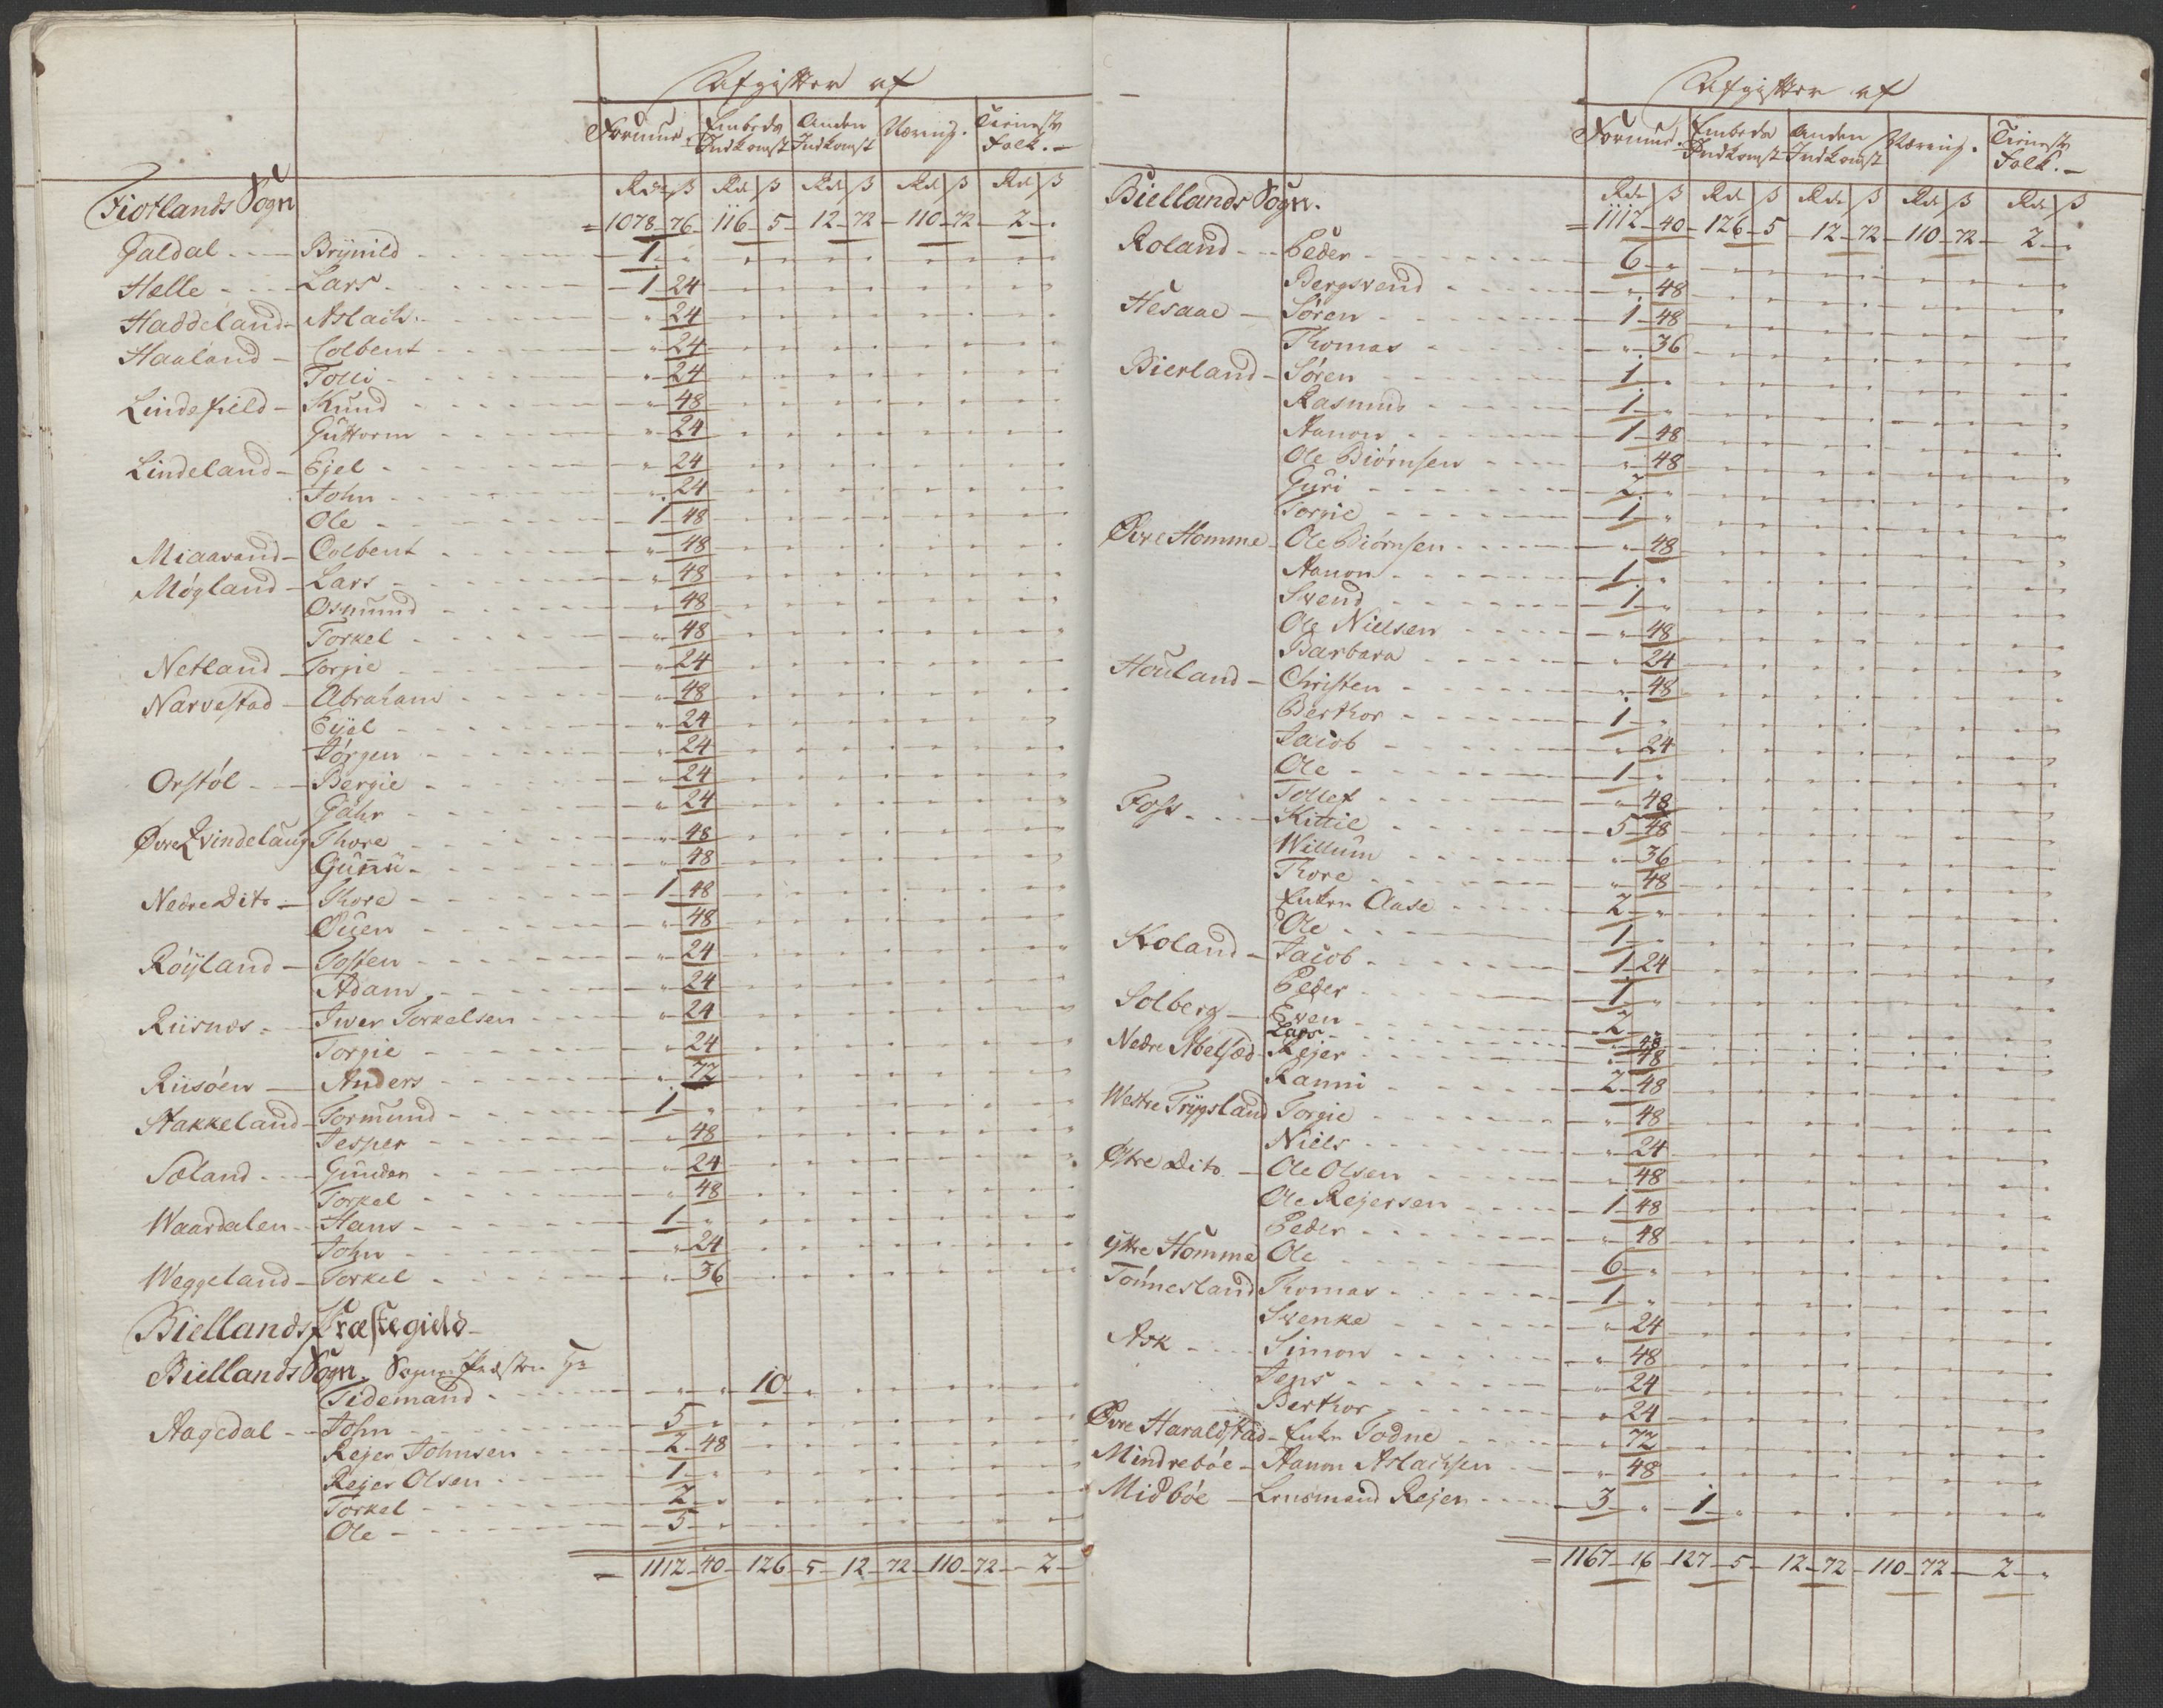 Afgifter af
Formue. Embeds Indkomst Anden Indkomst Næring. Tieneste Folk.
Rdr ß Rd ß Rd ß Rd ß Rd ß
Fiotlands Sogn = 1078 - 76 - 116 - 5 - 12 - 72 - 110 - 72 - 2 - "
Galdal - Brÿnild 1 - "
Helle - Lars 1 24
Haddeland - Aslach " 24
Haaland - Colbent " 24
Tolli " 24
Lindefield - Knud " 48
Guttorm " 24
Lindeland - Ejel " 24
John " 24
Ole 1 - 48
Miaavand - Colbent " 48
Møgland - Lars " 48
Osmund " 48
Torkel " 48
Netland - Torgie " 24
Narvestad - Abraham " 48
Eÿel " 24
Jørgen " 24
Orstøl - Bergie " 24
Gahr " 24
Øvre Qvindelaug Thore " 48
Gunnu " 48
Nedre Dito - Thore 1 - 48
Øuen " 48
Røÿland - Tosten " 24
Adam " 24
Riisnes - Iwer Torkelsen " 24
Torgie " 24
Riisøen - Anders " 72
Stakkeland - Tormund 1 - "
Jesper " 48
Sæland - Gunder " 24
Torkel " 48
Waardalen - Hans 1 - "
John " 24
Weggeland - Torkel " 36
Biellands Præstegield
Biellands Sogn. Sogne Præsten Hr
Tidemand " " 10 "
Aagedal - John 5 - "
Rejer Johnsen 2 - 48
Rejer Olsen 1 - "
Torkel 2 - "
Ole 5 - "
= 1112 - 40 - 126 - 5 - 12 - 72 - 110 - 72 - 2 -
Afgifter af
Formue. Embeds Indkomst Anden Indkomst Næring. Tieneste Folk.
Rdr ß Rd ß Rd ß Rd ß Rd ß
Biellands Sogn. = 1112 - 40 - 126 - 5 - 12 - 72 - 110 - 72 - 2 - "
Roland - Peder 6 - "
Bergsvend " 48
Hesaae - Søren 1 - 48
Thomas " 36
Bierland - Søren 1 - "
Rasmus 1 - "
Aanon 1 - 48
Ole Biørnsen " 48
Guri 2 - "
Torgie 1 - "
Øvre Homme - Ole Biørnsen " 48
Aanon 1 - "
Svend 1 - "
Ole Nielsen " 48
Barbara " 24
Houland - Christen " 48
Berthor 1 - "
Jacob " 24
Ole 1 - "
Tollef " 48
Foss - Kittil 5 - 48
Willum " 36
Thore " 48
Enken Aase 2 - "
Ole 1 - "
Kroland - Jacob 1 24
Peder 1 - "
Solberg - Even 2 - "
Lars " 48
Nedre Abelsæd - Rejer " 48
Ranni 2 - 48
Westre Trÿgsland Torgie " 48
Niels " 24
Østre Dito - Ole Olsen " 48
Ole Rejersen 1 - 48
Peder " 48
ÿtre Homme Ole 6 - "
Tønnesland Thomas 1 - "
Svenke " 24
Ask - Simon " 48
Jens " 24
Berthor " 24
Øvre Haraldstad - Enken Todne " 72
Mindrebøe - Aanon Aslachsen " 48
Midbøe - Lensmand Rejer 3 - " 1 - "
= 1167 - 16 - 127 - 5 - 12 - 72 - 110 - 72 - 2 - "